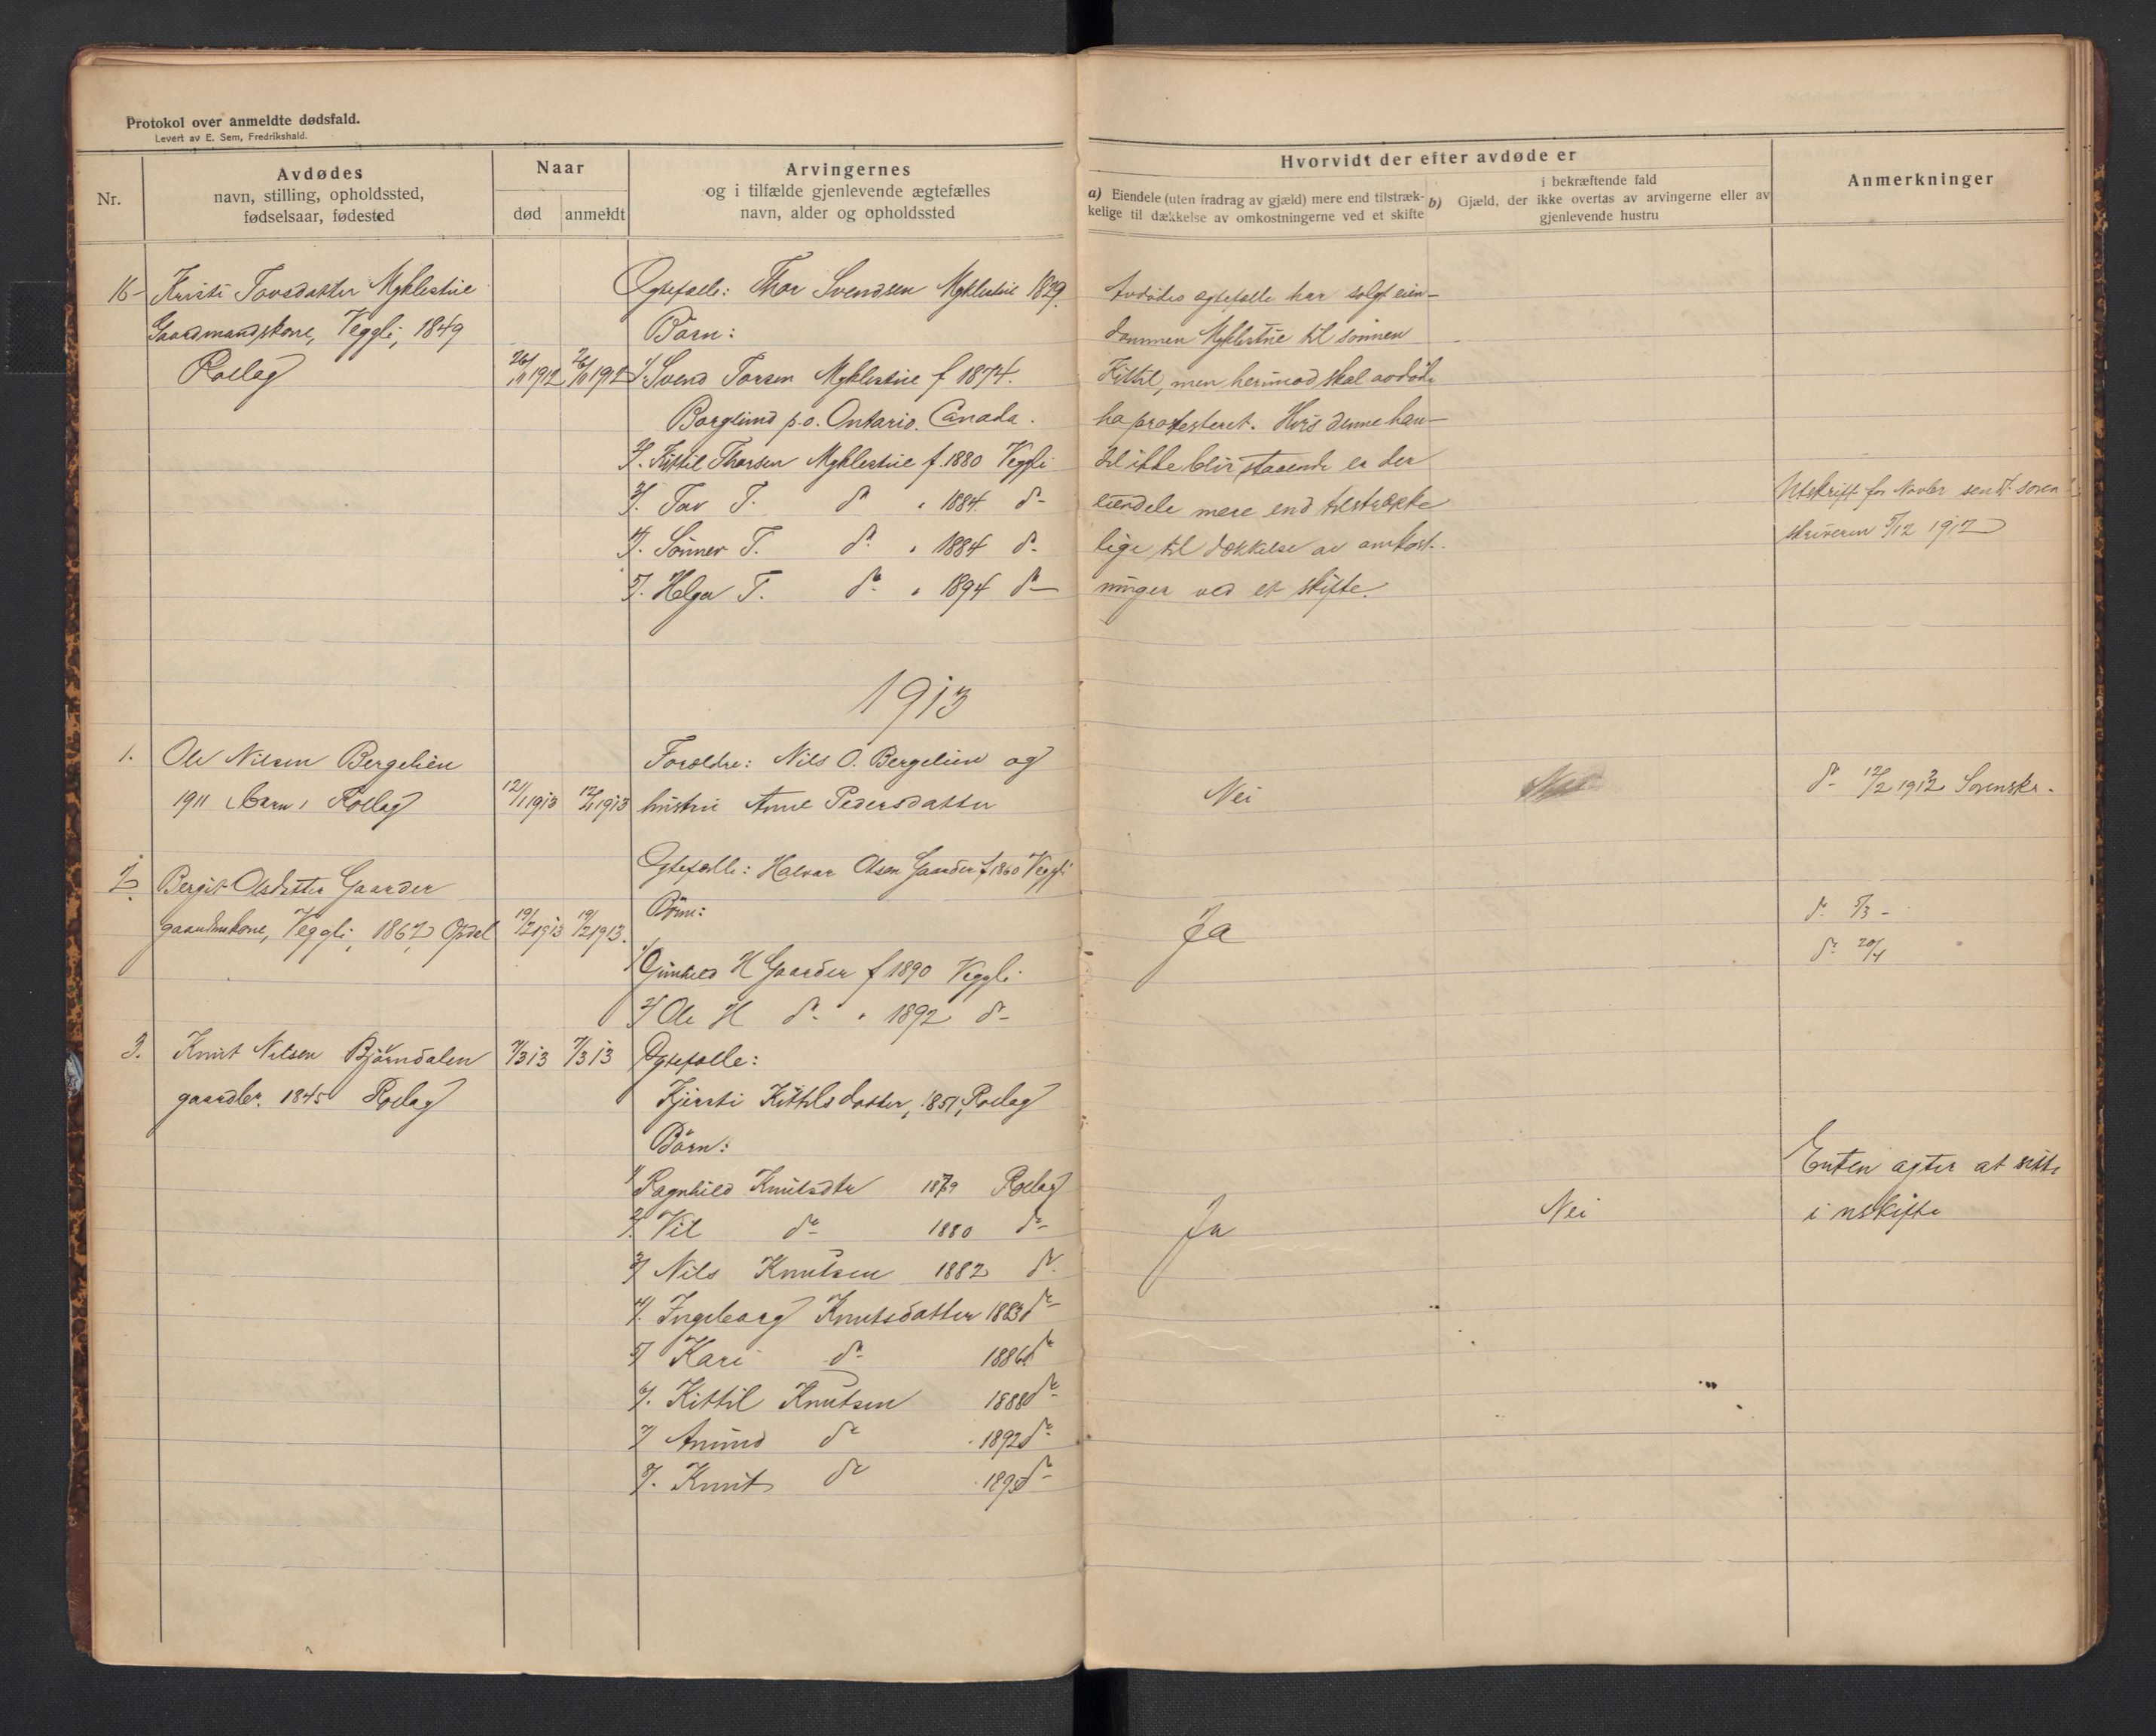 Protokol over anmeldte dødsfald.
Levert av E. Sem, Fredrikshald.
Nr.
Avdødes
navn, stilling, opholdssted,
fødselsaar, fødested
Naar
død anmeldt
Arvingernes
og i tilfælde gjenlevende ægtefælles
navn, alder og opholdssted
16 Kristi Tovsdatter Myklestue
Gaardmandskone, Veggli, 1849
Rollag
26/11 1912 26/11 1912
Ægtefælle: Thor Svendsen Myklestue 1829.
Børn:
1/ Svend Torsen Myklestue f 1874.
Borglund p.o. Ontario. Canada.
2/. Kittil Thorsen Myklestue f. 1880 Veggli
3/. Tov T. do " 1884 do
4/. Sønnev T. do " 1884 do
5/. Helga T. do " 1894 do
1913
1. Ole Nilsen Bergelien
1911 barn, Rollag
12/1 1913 12/1 1913
Foreldre: Nils O. Bergelien og
hustru Anne Pedersdatter
2 Bergit Olsdatter Gaarder
gaardmskone, Veggli, 1862 Opdal
19/2 1913 19/2 1913.
Ægtefælle: Halvor Olsen Gaarder f 1860 Veggli
Børn:
1/ Gunhild H Gaarder f 1890 Veggli
2/ Ole H do " 1892 do
3. Knut Nilsen Bjørndalen
gaardbr. 1845 Rollag
7/3 13 7/3 13
Ægtefælle:
Kjersti Kittilsdatter, 1851, Rollag
Børn:
1/ Ragnhild Knutsdtr 1879 Rollag
2/. Vil do 1880 do
3/ Nils Knutsen 1882 do
4/. Ingeborg Knutsdatter 1883 do
5/ Kari do 1886 do
6/. Kittil Knutsen 1888 do
7/ Amund do 1892 do
8/. Knut do 1895 do
Hvorvidt der efter avdøde er
a) Eiendele (uten fradrag av gjæld) mere end tilstræk-
kelige til dækkelse av omkostningerne ved et skifte
i bekræftende fald
b) Gjæld, der ikke overtas av arvingerne eller av
gjenlevende hustru
Anmerkninger
Avdødes ægtefælle har solgt eien-
dommen Myklestue til sønnen
Kittil, men herimod skal avdøde
ha protesteret. Hvis denne han-
del ikke blir staaende er der
eiendele mere end tilstrække
lige til dækkelse av omkost-
ninger ved et skifte.
Utskrift for Novbr sendt soren
skriveren 5/12 1912
Nei
do 12/2 1913 Sorenskr.
Ja
do 5/3 -
do 20/4
Ja
Nei
Enken agter at sitte
i uskifte